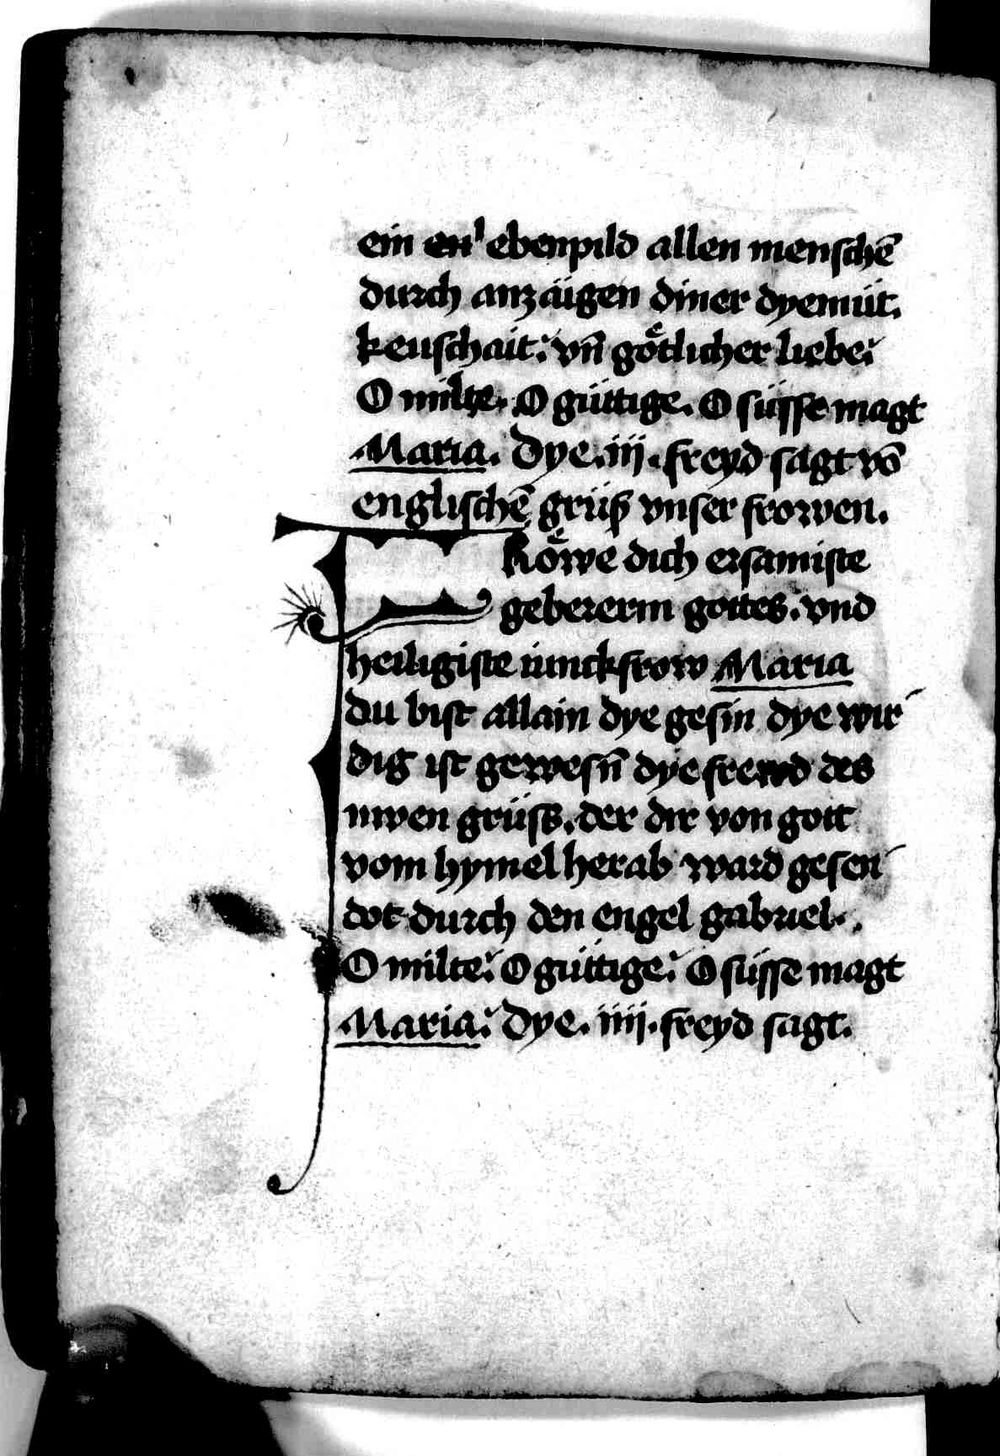 ein en' ebenpild allen menschē
durch anzäigen diner dyemüt.
keuschait: vn̄ gͦtlicher liebe:
O milte. O güttige. O süsse magt
Maria. Dye .iij. freyd sagt vō
englischē grüß vnser frowen.
Fröwe dich ersamiste
gebererin gottes. vnd
heiligiste iunckfrow Maria
du bist allain dye gesin dye wir
dig ist gewesn̄ dye frewd des
nwen grüss. der dir von gott
vom hymel herab ward gesen
dot durch den engel gabriel.
O milte: O güttige: O süsse magt
Maria: Dye .iiij. freyd sagt.